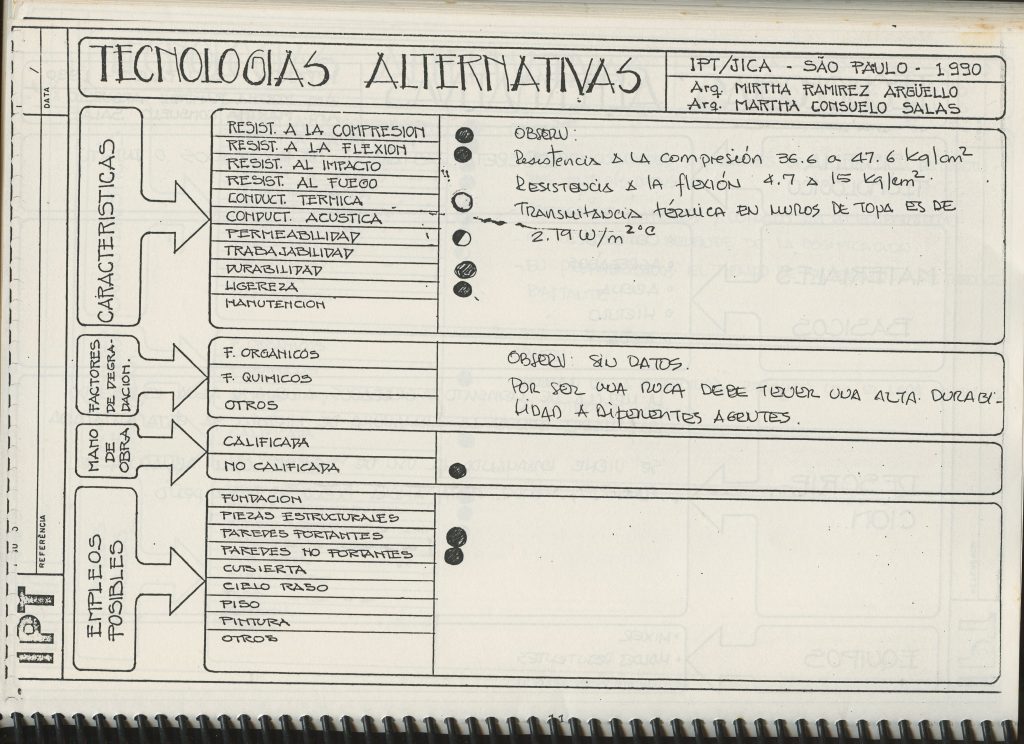 TECNOLOGIAS ALTERNATIVAS
IPT/JICA - SÃO PAULO - 1990
Arq. MIRTHA RAMIREZ ARGÜELLO
Arq. MARTHA CONSUELO SALAS
DATA
CARACTERISTICAS
RESIST. A LA COMPRESION
RESIST. A LA FLEXION
RESIST. AL IMPACTO
RESIST. AL FUEGO
CONDUCT. TERMICA
CONDUCT. ACUSTICA
PERMEABILIDAD
TRABAJABILIDAD
DURABILIDAD
LIGEREZA
MANUTENCION
OBSERV:
Resistencia A LA compresión 36.6 a 47.6 Kg/cm²
RESISTENCIA A la flexión 4.7 A 15 Kg/cm²
TRANSMITANCIA térmica EN MUROS DE TOVA ES DE
2.79 W/m²°C
FACTORES
DE DEGRA-
DACION.
F. ORGANICOS
F. QUIMICOS
OTROS
OBSERV: SIN DATOS.
POR SER UNA ROCA DEBE TENER UNA ALTA. DURABI-
LIDAD A DIFERENTES AGENTES.
MANO
DE
OBRA
CALIFICADA
NO CALIFICADA
EMPLEOS
POSIBLES
FUNDACION
PIEZAS ESTRUCTURALES
PAREDES PORTANTES
PAREDES NO PORTANTES
CUBIERTA
CIELO RASO
PISO
PINTURA
OTROS
REFERÊNCIA
IPT